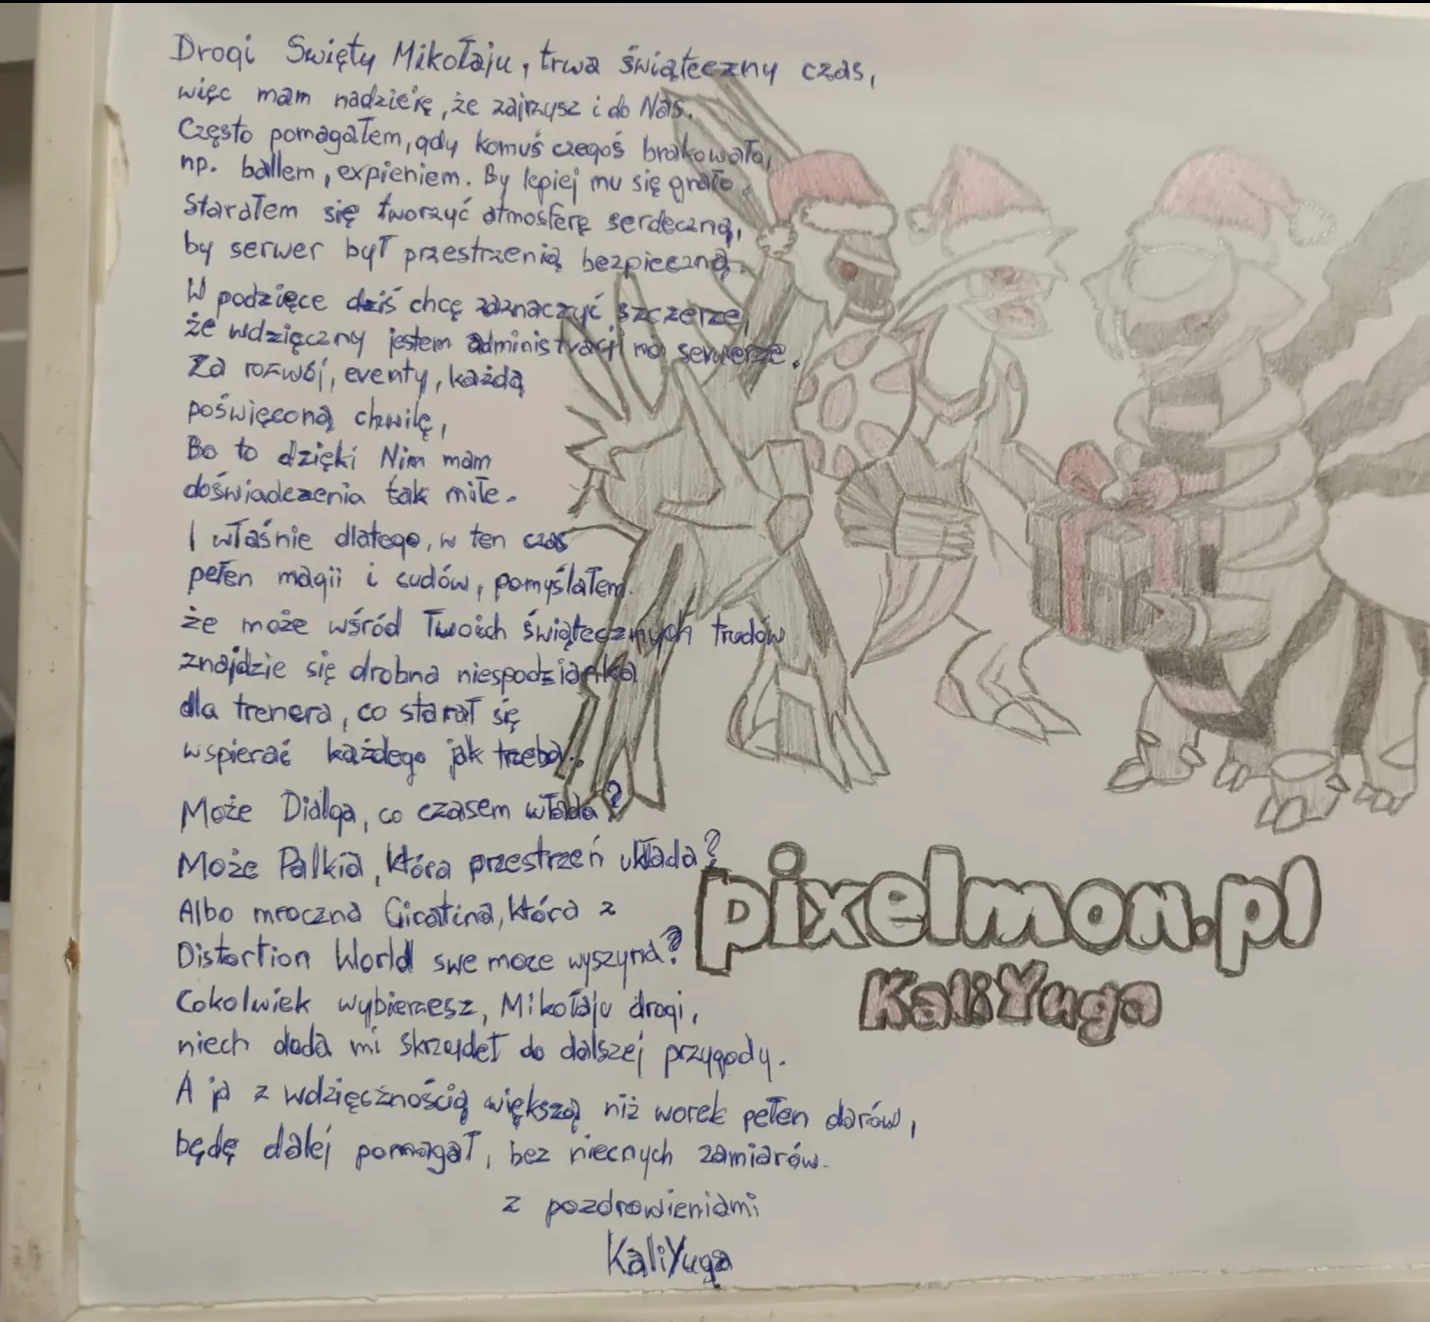 Drogi Swięty Mikołaju, trwa świąteczny czas,
więc mam nadzieję, że zajrzysz i do Nas.
Często pomagałem, gdy komuś czegoś brakowało,
np. ballem, expieniem. By lepiej mu się grało.
Starałem się tworzyć atmosferę serdeczną,
by serwer był przestrzenią bezpieczną.
W podzięce dziś chcę zaznaczyć szczerze,
że wdzięczny jestem administracji na serwerze.
Za rozwój, eventy, każdą
poświęconą chwilę,
Bo to dzięki Nim mam
doświadczenia tak miłe.
I właśnie dlatego, w ten czas
pełen magii i cudów, pomyślałem.
że może wśród Twoich świątecznych trudów
znajdzie się drobna niespodzianka
dla trenera, co starał się
wspierać każdego jak trzeba.
Może Dialga, co czasem włada?
Może Palkia, która przestrzeń układa?
Albo mroczna Giratina, która z
Distortion World swe moce wyszyna?
Cokolwiek wybierzesz, Mikołaju drogi,
niech doda mi skrzydeł do dalszej przygody.
A ja z wdzięcznością większą niż worek pełen darów,
będę dalej pomagał, bez niecnych zamiarów.
z pozdrowieniami
KaliYuga
pixelmon.pl
KaliYuga